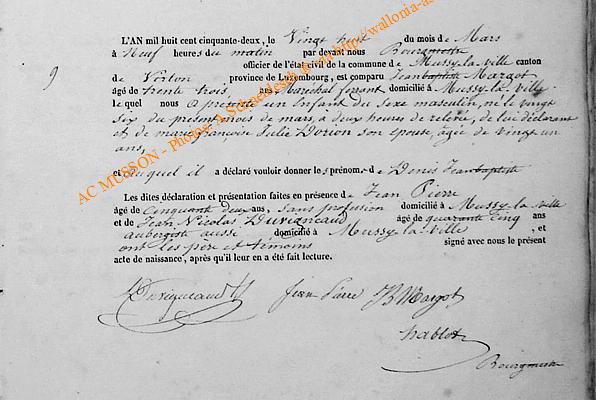 L'AN mil huit cent cinquante-deux, le Vingt huit du mois de Mars
à Neuf heures du matin par devant nous Bourgmestre
officier de l'état civil de la commune de Mussy-la-ville canton
de Virton province de Luxembourg, est comparu Jean baptiste Margot
9
âgé de trente trois, ans Maréchal ferrant domicilié à Mussy-la-ville
lequel nous a présenté un Enfant du Sexe masculin, né le vingt
six du présent mois de mars, à deux heures de relevée, de lui déclarant
et de marie françoise Julie Dorion son épouse, âgée de vingt un
ans,
et auquel il a déclaré vouloir donner les prénoms de Denis Jean baptiste
Les dites déclaration et présentation faites en présence de Jean Pierre
âgé de Cinquante deux ans, sans profession domicilié à Mussy la ville
et de Jean Nicolas Duvigneaud âgé de quarante Cinq ans
aubergiste aussi domicilié à Mussy-la-ville , et
ont les père et témoins signé avec nous le présent
acte de naissance, après qu'il leur en a été fait lecture.
Duvigneaud Jean Pierre JB Margot
Bourgmestre
AC MUSSON - Photos: A. Schmeltesch
http://wallonia-as